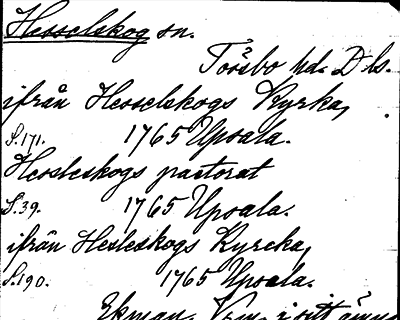 Hesselskog sn.
Tössbo hd. Dls.
ifrån Hesselskogs Kyrka,
S.171. 1765 Upsala.
Hessleskogs pastorat
S.39. 1765 Upsala.
ifrån Hesleskogs Kyrcka,
S.190. 1765 Upsala.
Ekman, i sitt